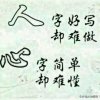 人
字好写
做却难
心
字简单
懂却难